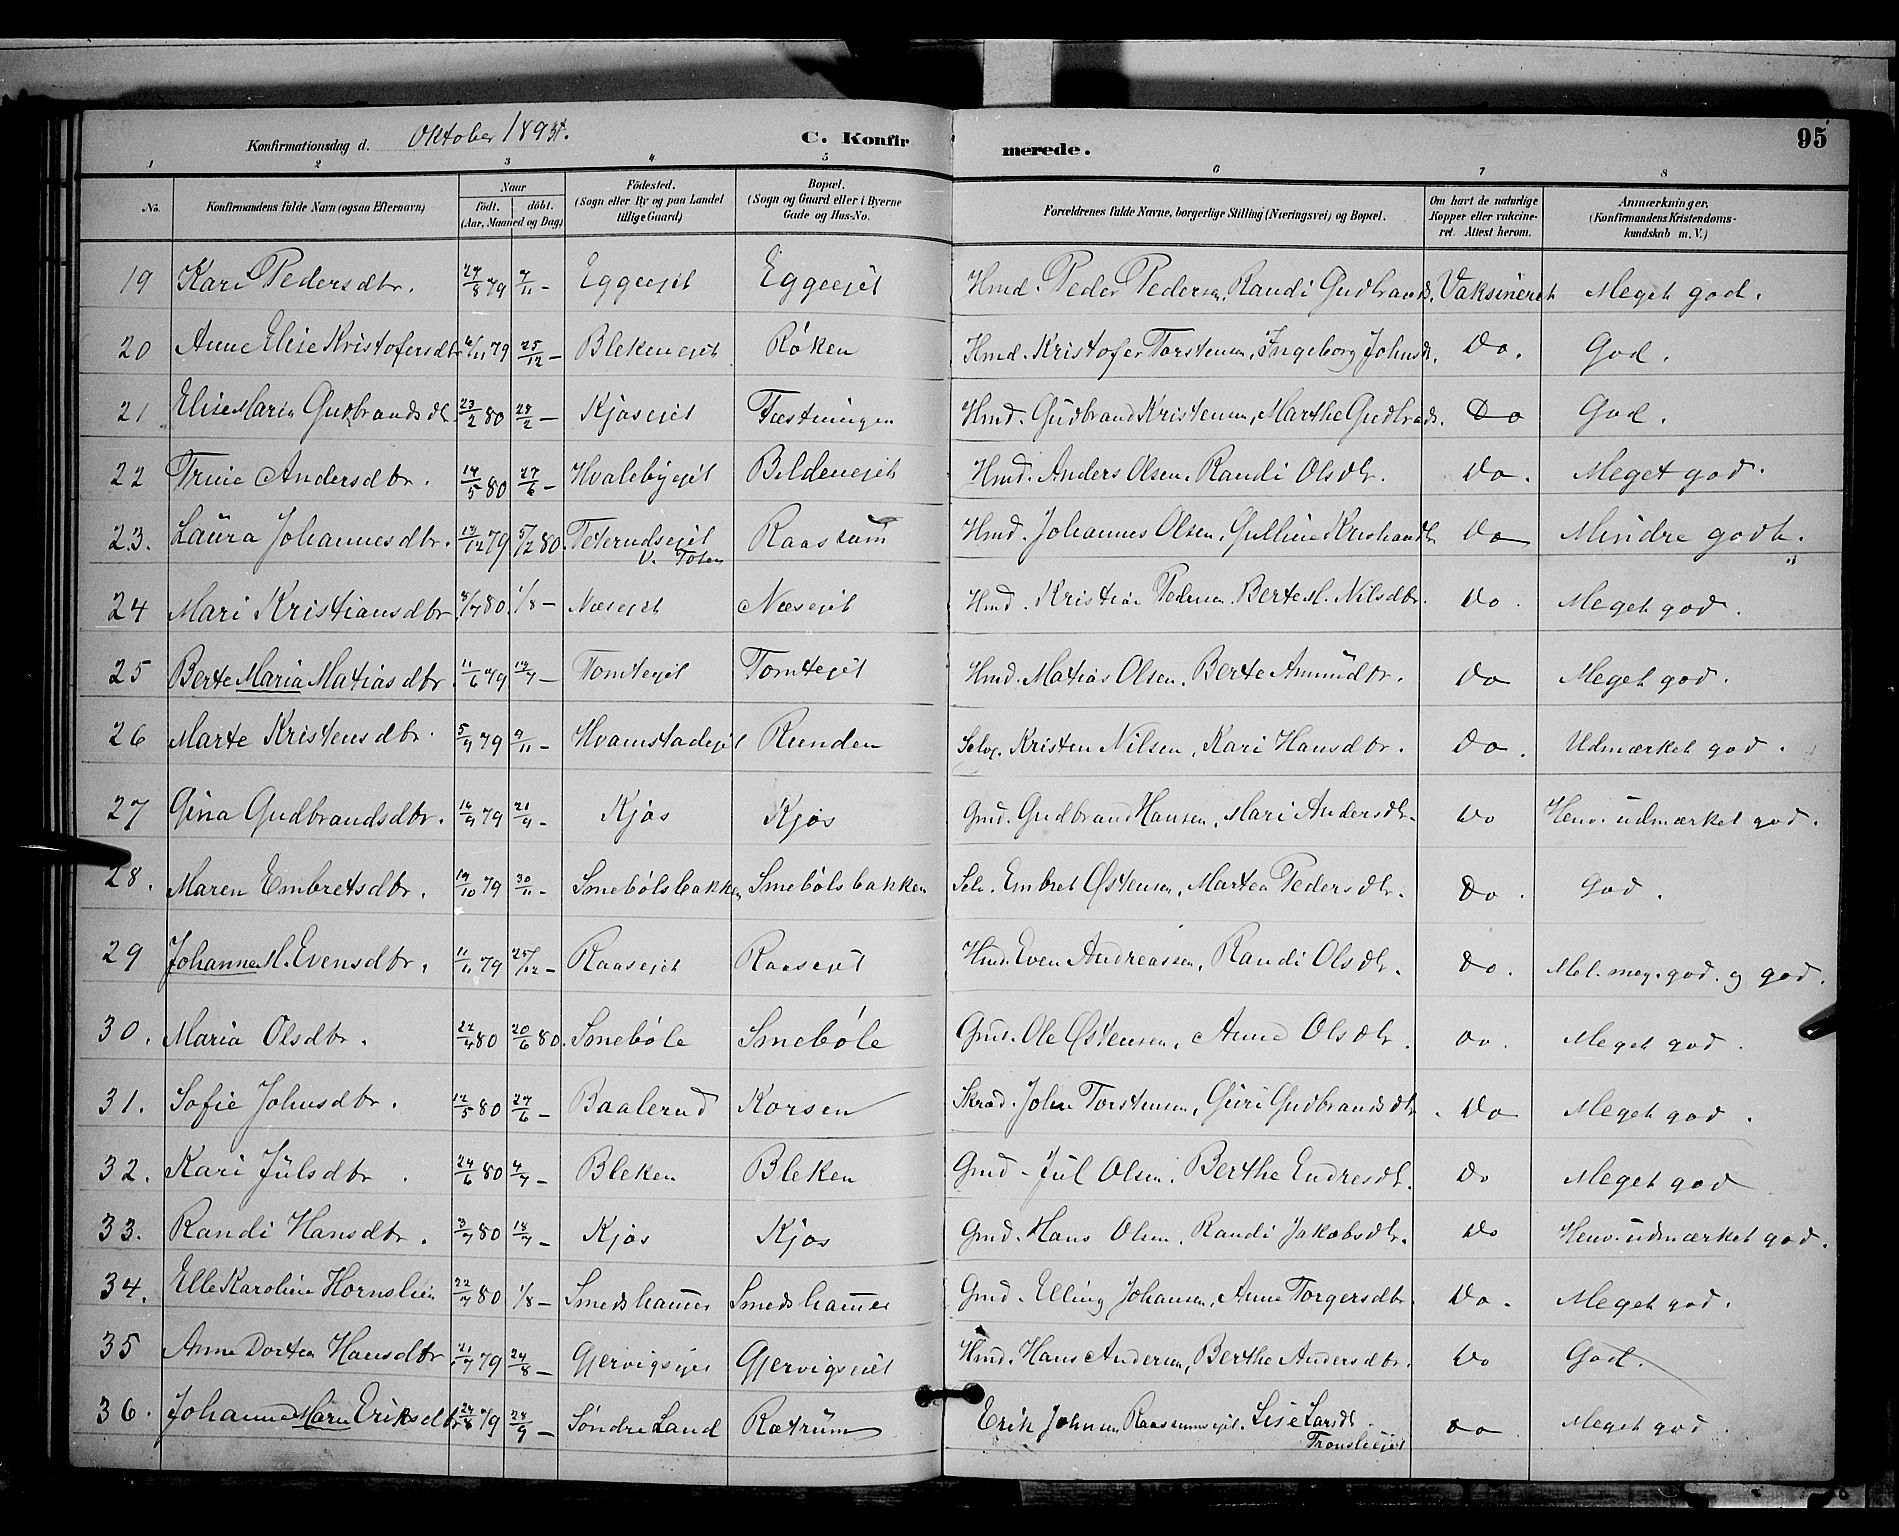 Konfirmationsdag d. Oktober 1894. C. Konfirmerede. 95
1 2 3 4 5 6 7 8
No. Konfirmandens fulde Navn (ogsaa Efternavn) Naar födt. döbt. (Aar, Maaned og Dag) Födested. (Sogn eller By og paa Landet tillige Gaard) Bopæl. (Sogn og Gaard eller i Byerne Gade og Hus-No. Forældrenes fulde Navne, borgerlige Stilling (Næringsvei) og Bopæl. Om havt de naturlige Kopper eller vakcineret. Attest herom. Anmærkninger. (Konfirmandens Kristendomskundskab m. V.)
19 Kari Pedersdtr. 79 7/11 - Eggeejet Eggeejet Hmd. Peder Pedersen, Randi Gudbrands. Vaksineret Meget god.
20 Anne Elise Kristofersdtr 6/11 79 25/12 - Blekenejet Røken Hmd. Kristofer Torstensen, Ingeborg Johnsd. Do. God.
21 Elise Maria Gudbrandsdt. 23/2 80 28/2 - Kjosejet Fæstningen Hmd. Gudbrand Kristensen, Marthe Gudbrads. Do God.
22 Trine Andersdtr. 14/5 80 27/6 - Hvalebyejet Bildenejet Hmd. Anders Olsen, Randi Olsdtr. Do. Meget god.
23. Laura Johannesdtr. 13/12 79 5/2 80. Teterudsejet V. Toten Raassum Hmd. Johannes Olsen, Gulline Kristiansdtr Do Mindre godt.
24 Mari Kristiansdtr. 8/7 80 1/8 - Næsejet Næsejet Hmd. Kristian Pedersen, Berte M. Nilsdtr. Do. Meget god.
25 Berte Maria Matiasdtr. 11/6 79 13/7 - Tomtejet Tomtejet Hmd. Matias Olsen, Berte Amundtr. Do Meget god.
26 Marte Kristensdtr. 5/9 79 9/11 - Hvamstadejet Runden Selv. Kristen Nilsen, Kari Hansdtr. Do. Udmærket god.
27 Gina Gudbrandsdtr. 16/9 79 21/9 - Kjos Kjos Gmd. Gudbrand Hansen, Mari Andersdtr. Do Henv. udmærket god.
28. Maren Embretsdtr. 14/10 79 30/11 - Smebølsbakken Smebølsbakken Selv. Embret Østensen, Martea Pedersdtr. Do. God.
29 Johanne M. Evensdtr. 11/11 79 25/12 - Raasejet Raasejet Hmd. Even Andreassen, Randi Olsdtr. Do. Mel. meg. god. og god.
30. Maria Olsdtr. 22/4 80 20/6 80. Smebøle Smebøle Gmd. Ole Østensen, Anne Olsdtr. Do. Meget god.
31. Sofie Johnsdtr. 12/5 80 27/6 - Baalerud Korsen Skræd. John Torstensen, Guri Gudbrandsdtr. Do Meget god.
32. Kari Julsdtr. 24/6 80 4/7 - Bleken Bleken Gmd. Jul Olsen, Berthe Endresdt. Do Meget god
33. Randi Hansdtr. 3/7 80 18/7 - Kjos Kjos Gmd. Hans Olsen, Randi Jakobsdtr. Do Henv. udmærket god.
34. Elle Karoline Hornslien 22/7 80 1/8 - Smedshammer Smedshammer Gmd. Elling Johansen, Anne Torgersdtr. Do. Meget god.
35 Anne Dortea Hansdtr 21/7 79 24/8 - Gjervigsejet Gjervigsejet Hmd. Hans Andersen, Berthe Andersdtr. Do God.
36. Johanne Marie Eriksdtr 24/8 79 28/9 - Søndre Land Rotrum Erik Johnsen Raassumsejet. Lise Larsdt. Tronsliejet Do Meget god.